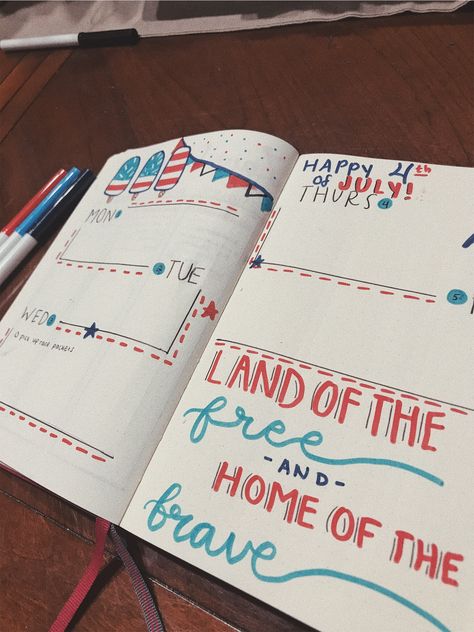 MON
2 TUE
WED 3
pick up race packets
HAPPY 4th
of JULY!
THURS 4
5
LAND OF THE
free
-AND-
HOME OF THE
brave